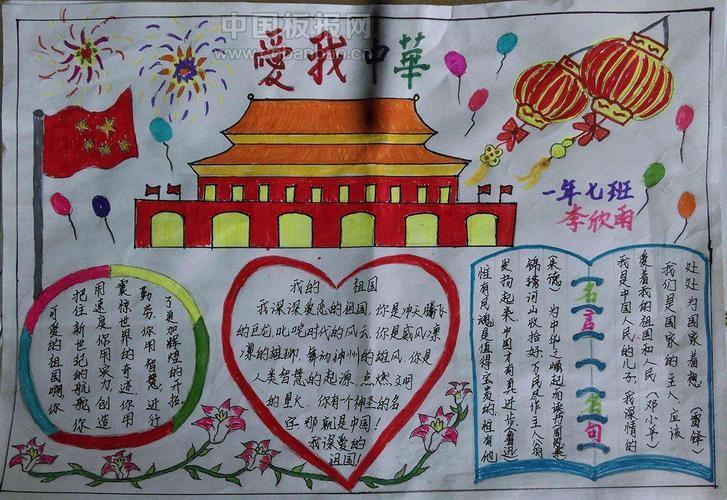 中国板报网
愛我中華
一年七班
李欣雨
可爱的祖国啊,你
把住新世纪的航舵,你
用速度,你用实力,创造
震惊世界的奇迹,你用
勤劳,你用智慧,进行
了更加辉煌的开拓
我的 祖国
我深深爱恋的祖国,你是冲天腾飞
的巨龙,叱咤时代的风云,你是威风凛
凛的雄狮,舞动神州的雄风,你是
人类智慧的起源,点燃文明
的星火,你有一个神圣的名
字,那就是中国!
我深爱的
祖国!
惟有民魂是值得宝贵的,惟有他
发扬起来,中国才有真进步.(鲁迅)
锦绣河山收拾好,万民尽作主人翁
(朱德) 为中华之崛起而读书(周恩来)
名言名句
我是中国人民的儿子,我深情的
爱着我的祖国和人民 (邓小平)
我们是国家的主人,应该
处处为国家着想 (雷锋)